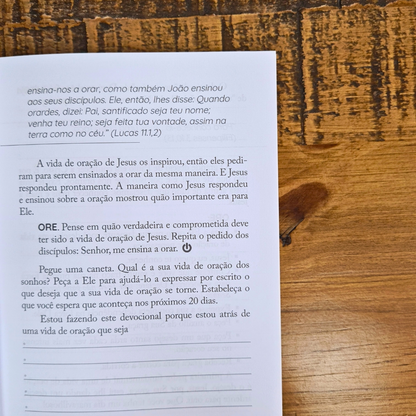 ensina-nos a orar, como também João ensinou
aos seus discípulos. Ele, então, lhes disse: Quando
orardes, dizei: Pai, santificado seja teu nome;
venha teu reino; seja feita tua vontade, assim na
terra como no céu.” (Lucas 11.1,2)
A vida de oração de Jesus os inspirou, então eles pedi-
ram para serem ensinados a orar da mesma maneira. E Jesus
respondeu prontamente. A maneira como Jesus respondeu
e ensinou sobre a oração mostrou quão importante era para
Ele.
ORE. Pense em quão verdadeira e comprometida deve
ter sido a vida de oração de Jesus. Repita o pedido dos
discípulos: Senhor, me ensina a orar.
Pegue uma caneta. Qual é a sua vida de oração dos
sonhos? Peça a Ele para ajudá-lo a expressar por escrito o
que deseja que a sua vida de oração se torne. Estabeleça o
que você espera que aconteça nos próximos 20 dias.
Estou fazendo este devocional porque estou atrás de
uma vida de oração que seja